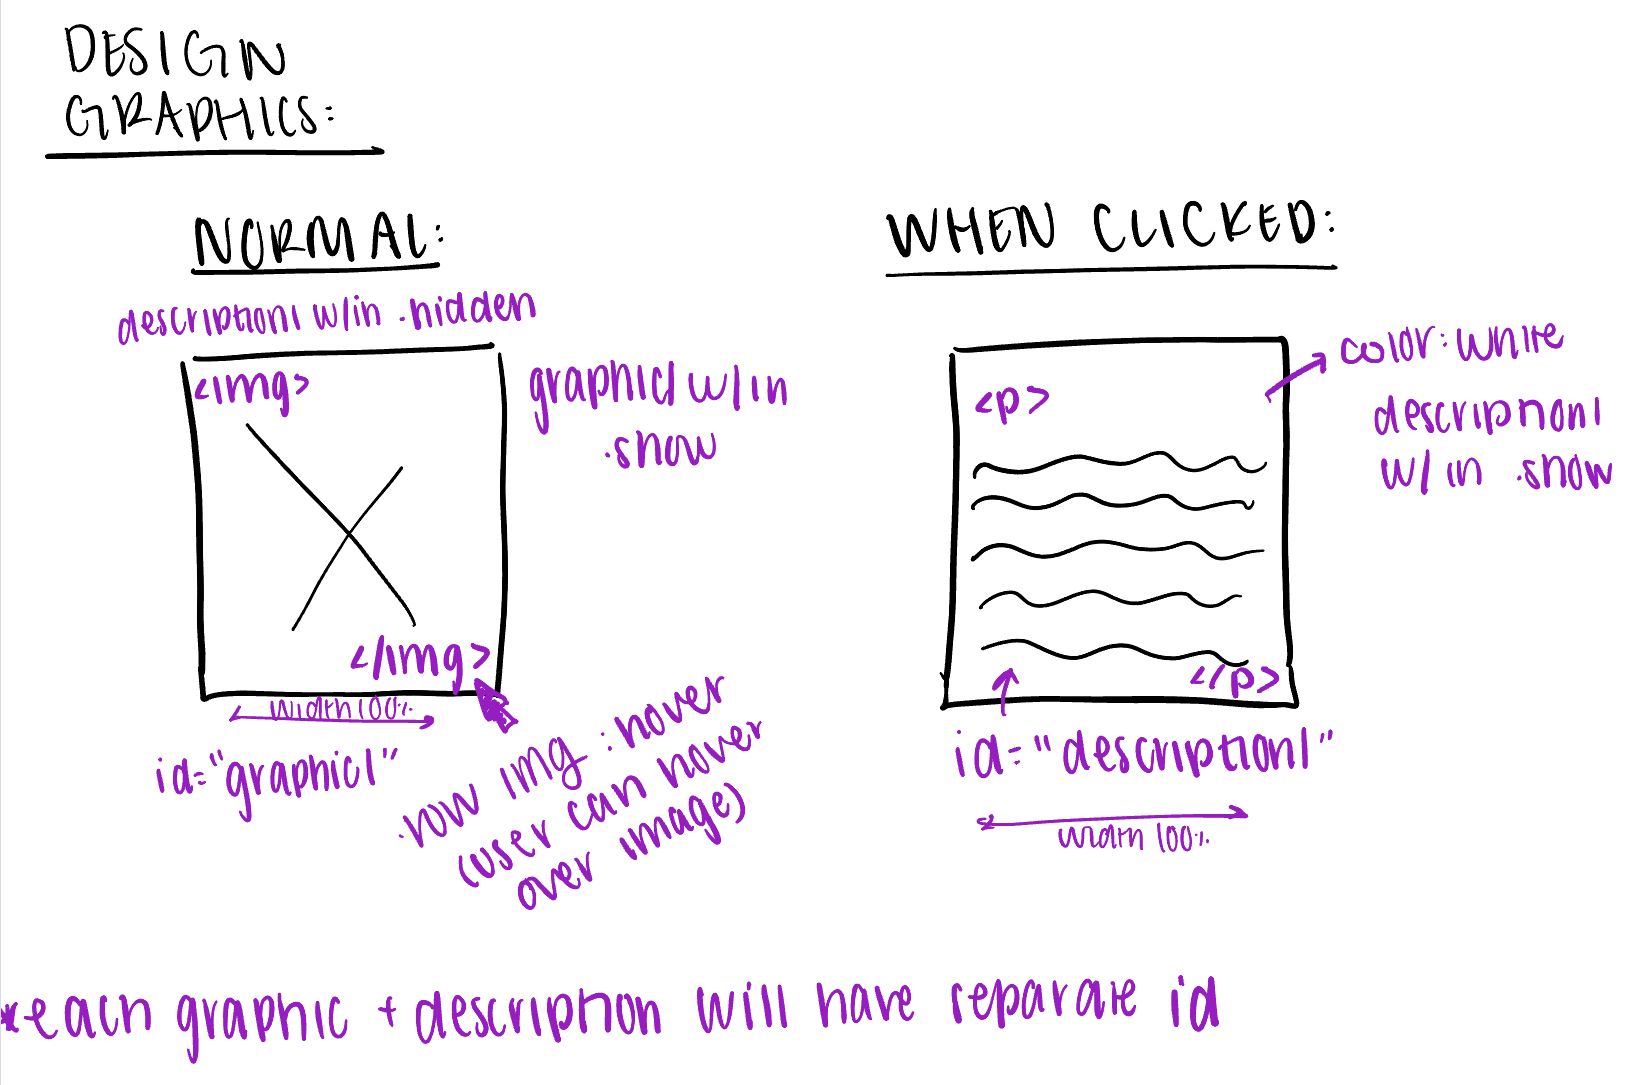 DESIGN
GRAPHICS:
NORMAL:
description1 w/in .hidden
<img>
graphic1 w/in
.show
</img>
width 100%
id="graphic1"
.row img :hover
(user can hover
over image)
WHEN CLICKED:
<p>
color: white
description1
w/in .show
</p>
id="description1"
width 100%
*each graphic + description will have separate id